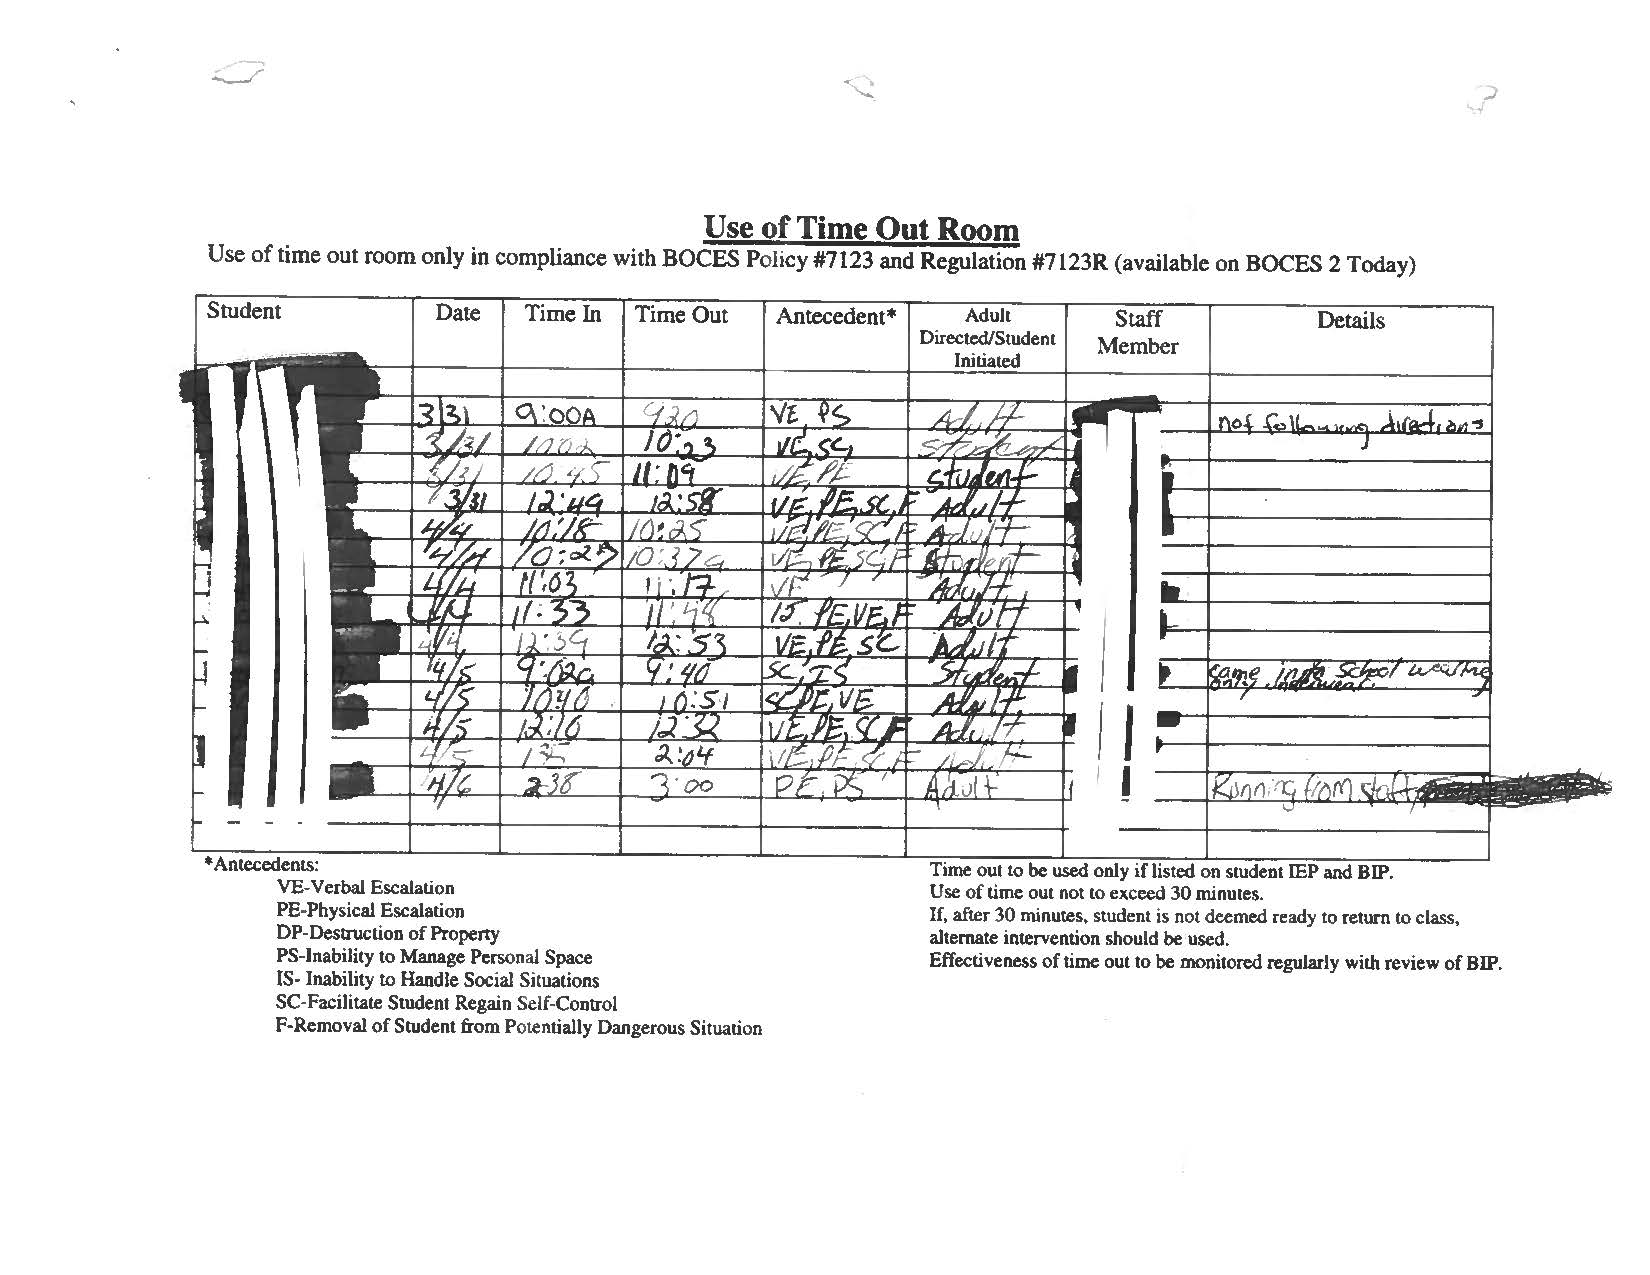 Use of Time Out Room
Use of time out room only in compliance with BOCES Policy #7123 and Regulation #7123R (available on BOCES 2 Today)
Student Date Time In Time Out Antecedent* Adult Directed/Student Initiated Staff Member Details
3/31 9:00A 920 VE, PS Adult not following directions
3/31 1002 10:23 VE, SC, Student
3/31 10:45 11:09 VE, PE Student
3/31 12:49 12:58 VE, PE, SC, F Adult
4/4 10:18 10:25 VE, PE, SC, F Adult
4/4 10:27 10:37a VE, PE, SC, F Student
4/4 11:03 11:17 VE Adult
4/4 11:33 11:48 PE, VE, F Adult
4/4 12:39 12:53 VE, PE, SC Adult
4/5 9:02a 9:40 SC, IS Student came into school wearing only
4/5 1040 10:51 SC, PE, VE Adult
4/5 12:10 12:32 VE, PE, SC, F Adult
4/5 2:04 VE, PE, SC, F Adult
4/6 238 3:00 PE, PS Adult Running from staff
*Antecedents:
VE-Verbal Escalation
PE-Physical Escalation
DP-Destruction of Property
PS-Inability to Manage Personal Space
IS- Inability to Handle Social Situations
SC-Facilitate Student Regain Self-Control
F-Removal of Student from Potentially Dangerous Situation
Time out to be used only if listed on student IEP and BIP.
Use of time out not to exceed 30 minutes.
If, after 30 minutes, student is not deemed ready to return to class,
alternate intervention should be used.
Effectiveness of time out to be monitored regularly with review of BIP.